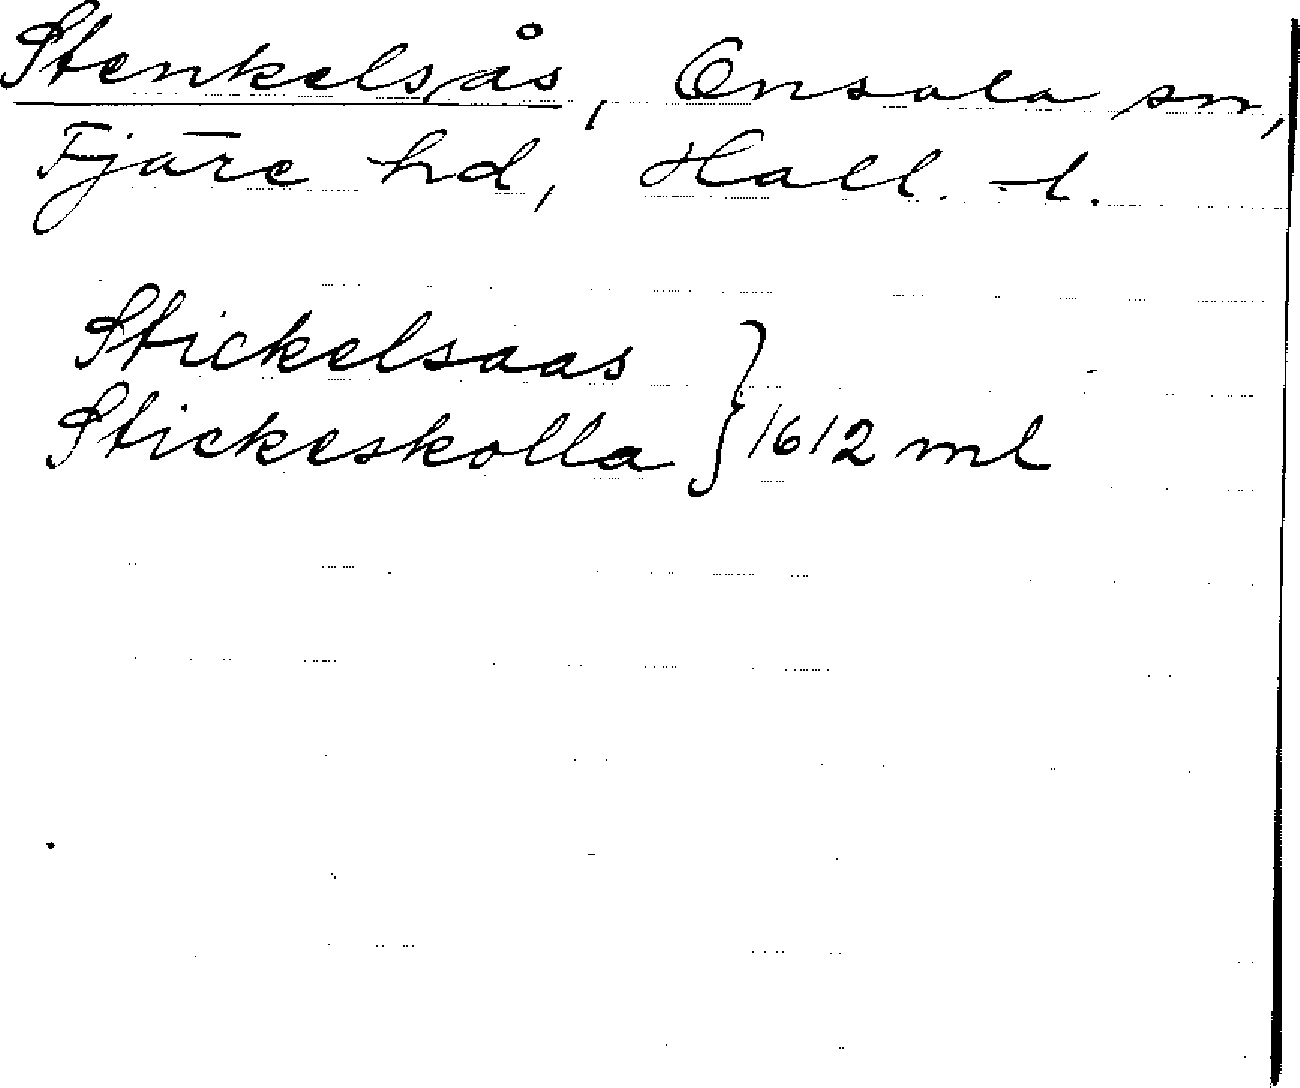 Stenkelsås, Onsala sn,
Fjäre hd, Hall. l.
Stickelsaas
Stickeskolla } 1612 ml